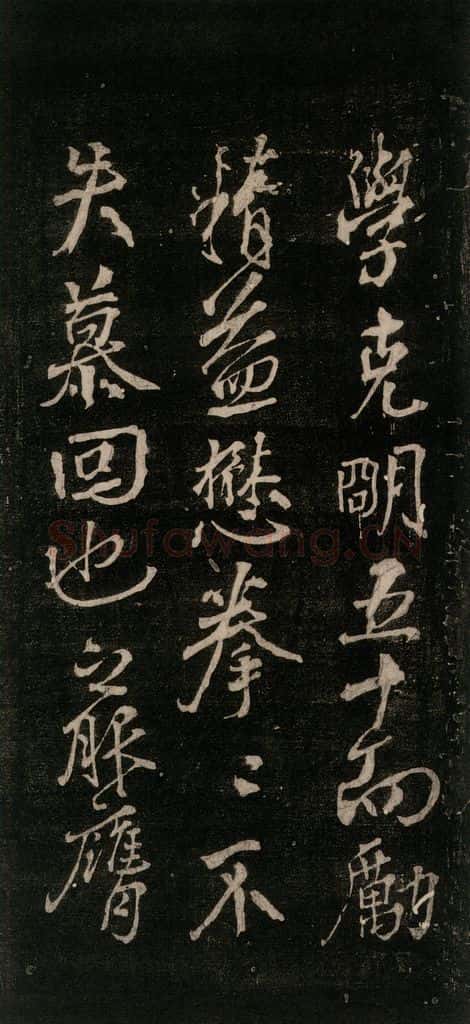 學克明五十而勵
精益懋拳〻不
失慕回也之服膺
Shufawang.CN